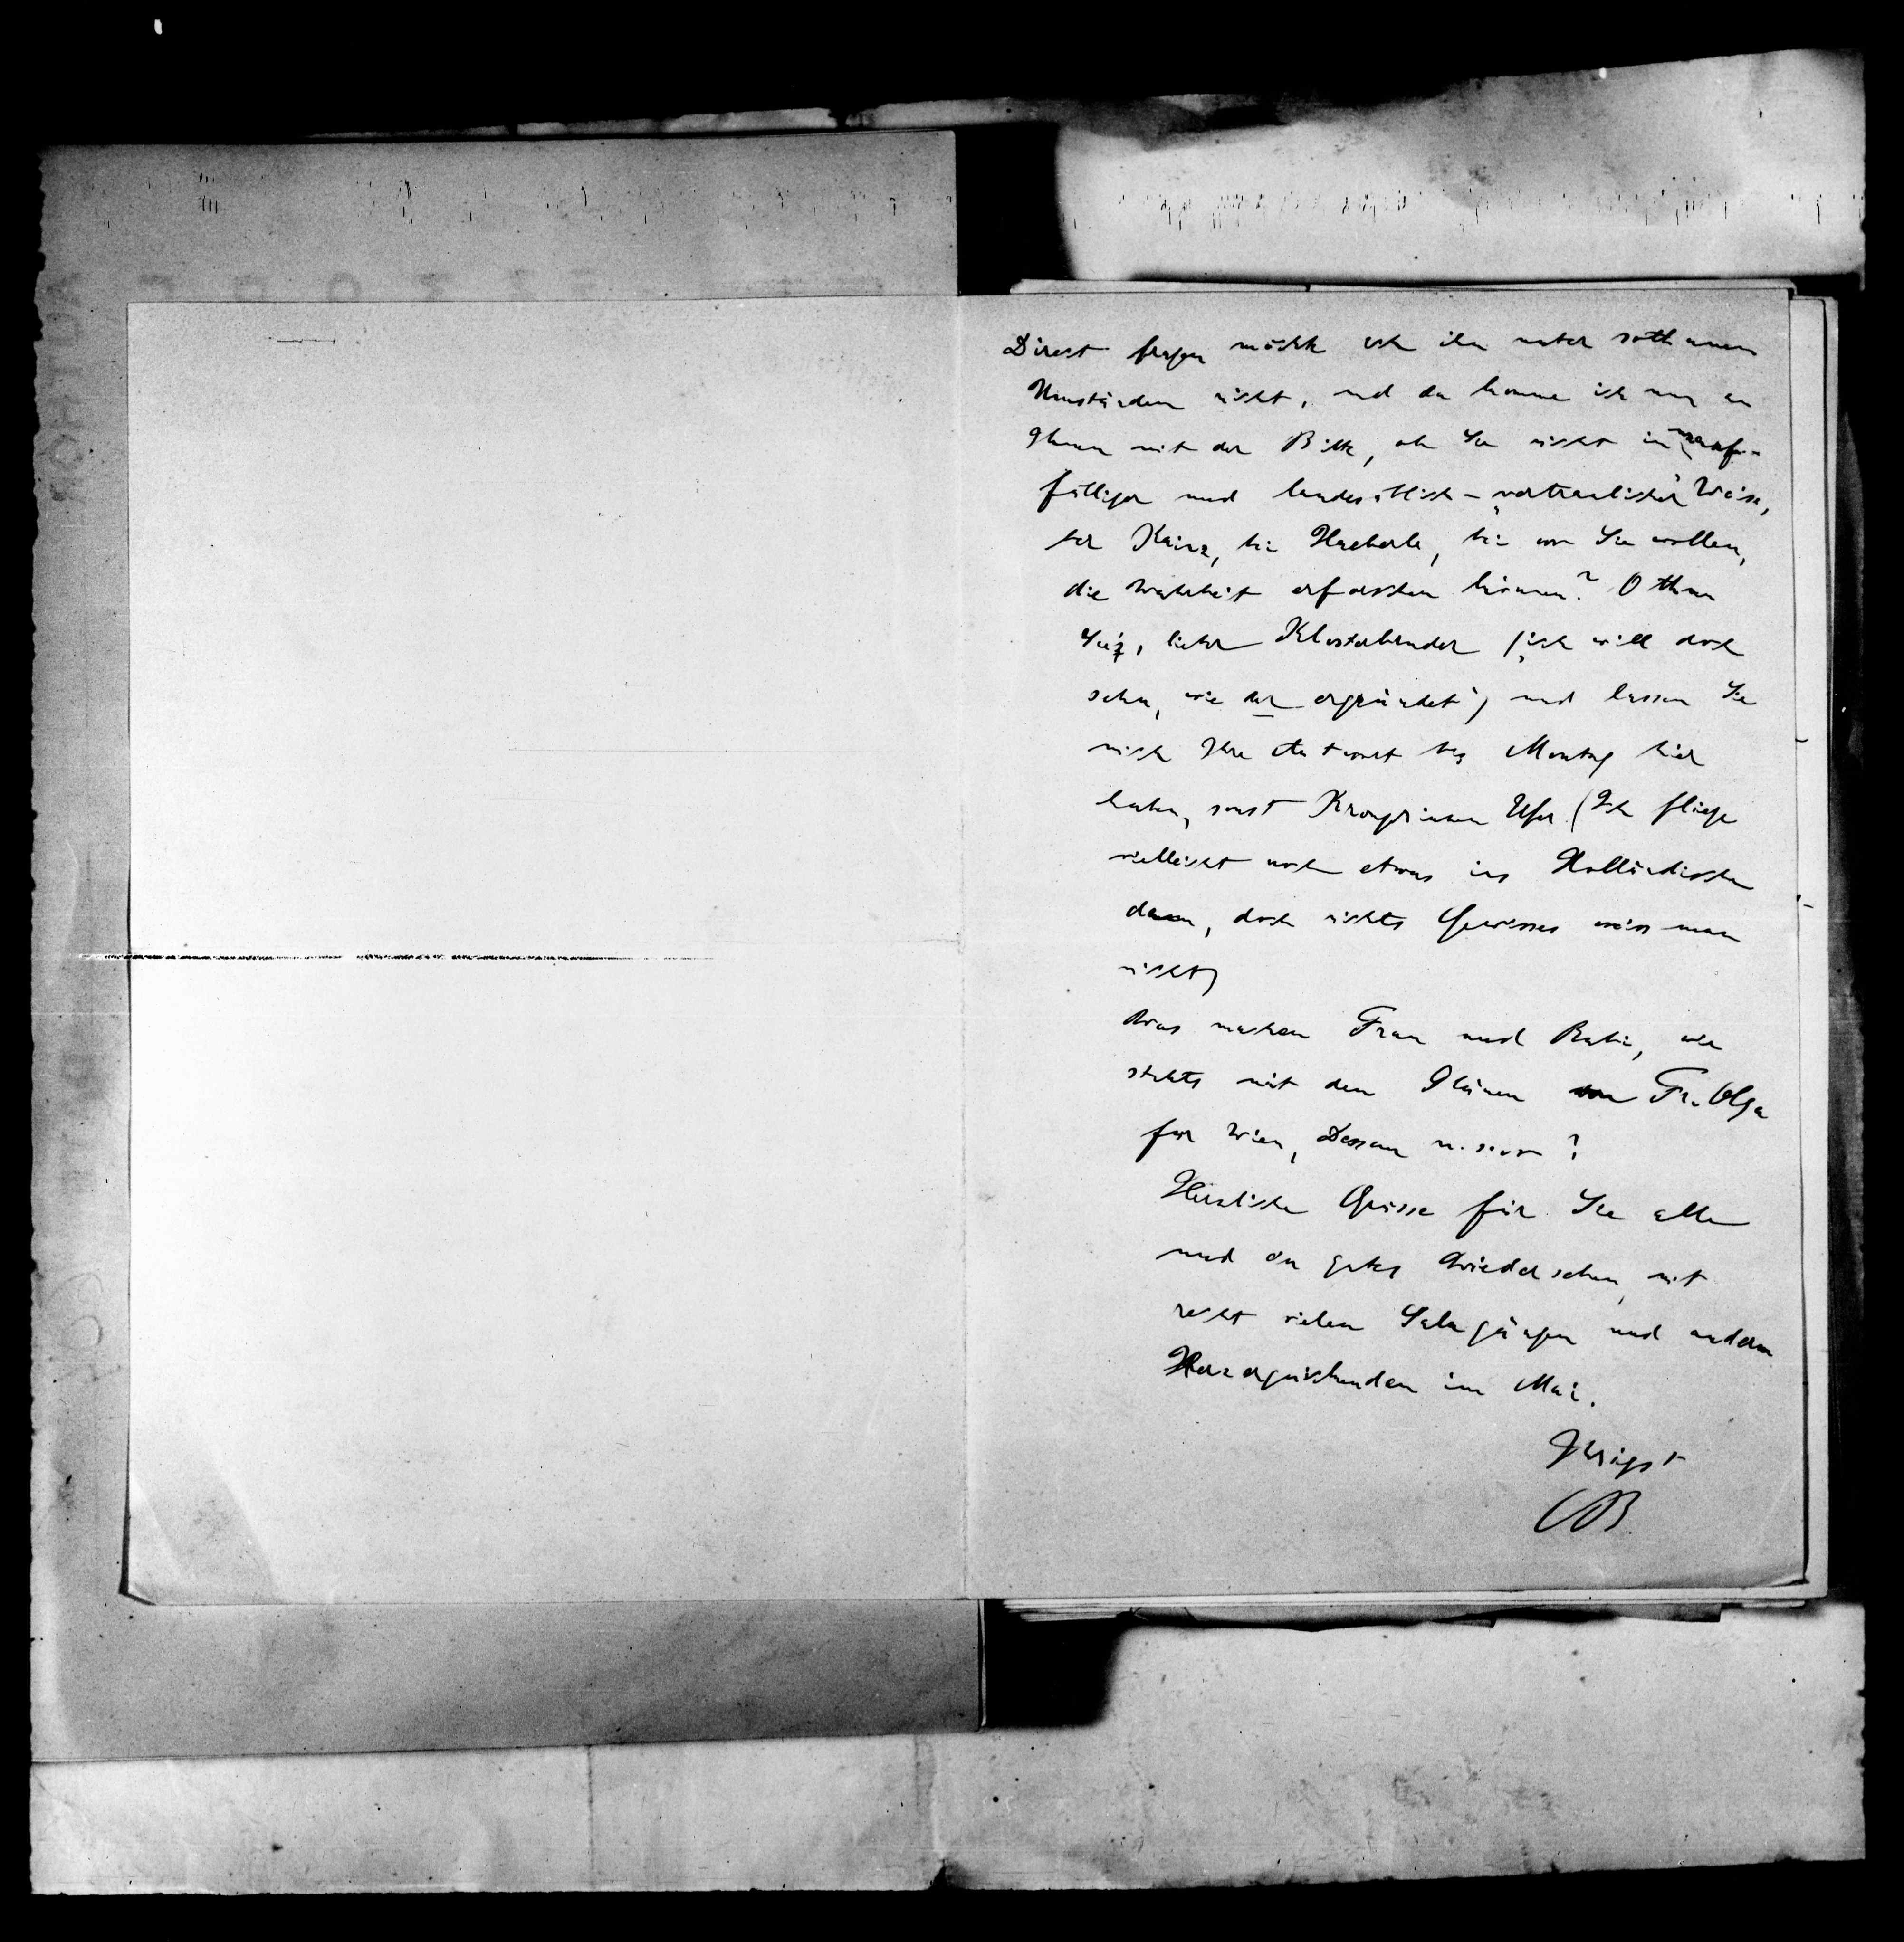 Direct fragen möchte ich ihn unter sothanen
Umständen nicht, und da komme ich nun zu
Ihnen mit der Bitte, ob Sie nicht in unauf-
fälliger und landesüblich-„vertraulicher“ Weise,
bei Kainz, bei Haeberle, bei wem Sie wollen,
die Wahrheit erforschen können? O thun
Sie's, lieber Klosterbruder („ich will doch
sehn, wie der ergründet“) und lassen Sie
mich Ihre Antwort bis Montag hier
haben, sonst Kronprinzen Ufer. (Ich fliege
vielleicht noch etwas ins Holländische
dann, doch nichts Gewisses weiss man
nicht)
Was machen Frau und Bubi, wie
stehts mit den Plänen von Fr. Olga
für Wien, Dessau u. s. w.?
Herzliche Grüsse für Sie alle
und ein gutes Wiedersehen, mit
recht vielen Salzgängen und andern
Herzerquickenden im Mai.
Ihrigst
OB.